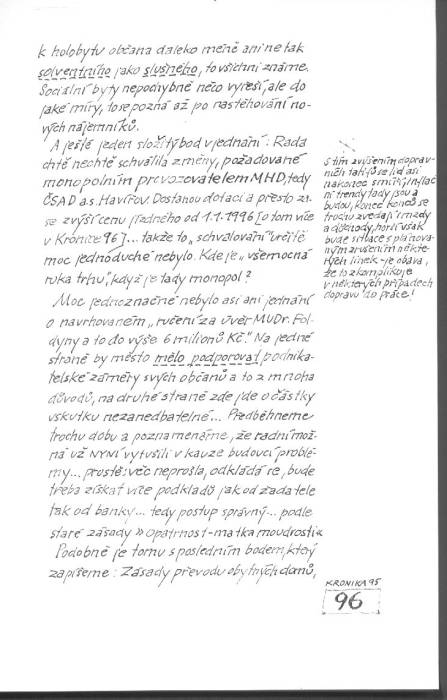 k holobytu občana daleko méně ani ne tak
solventního jako slušného, to všichni známe.
Sociální byty nepochybně něco vyřeší, ale do
jaké míry, to se pozná až po nastěhování no-
vých nájemníků.
A ještě jeden složitý bod v jednání: Rada
chtě nechtě schválila změny, požadované
monopolním provozovatelem MHD, tedy
ČSAD a.s. Havířov. Dostanou dotaci a přesto zů.
se zvýší cenu jízdného od 1.1.1996 [o tom více
v Kronice 96]... takže to „schvalování" určitě
moc jednoduché nebylo. Kde je „všemocná
ruka trhu", když je tady monopol?
Moc jednoznačné nebylo asi ani jednání
o navrhovaném „ručení za úvěr MUDr. Fol-
dyny a to do výše 6 milionů Kč." Na jedné
straně by město mělo podporovat podnika-
telské záměry svých občanů a to z mnoha
důvodů, na druhé straně zde jde o částky
vskutku nezanedbatelné... Předběhneme
trochu dobu a poznamenáme, že radní mož-
ná už NYNÍ vytušili v kauze budoucí problé-
my... prostě: věc neprošla, odkládá se, bude
třeba získat více podkladů jak od žadatele
tak od banky... tedy postup správný... podle
staré zásady »Opatrnost-matka moudrosti«
Podobně je tomu s posledním bodem, který
zapíšeme: Zásady převodu obytných domů,
S tím zvýšením doprav-
ních tarifů se lidé asi
nakonec smíří, inflač
ní trendy tady jsou a
budou, konec konců se
trochu zvedají i mzdy
a důchody, horší však
bude situace s plánova-
ným zrušením někte-
rých linek - je obava,
že to zkomplikuje
v některých případech
dopravu do práce!
KRONIKA 95
96